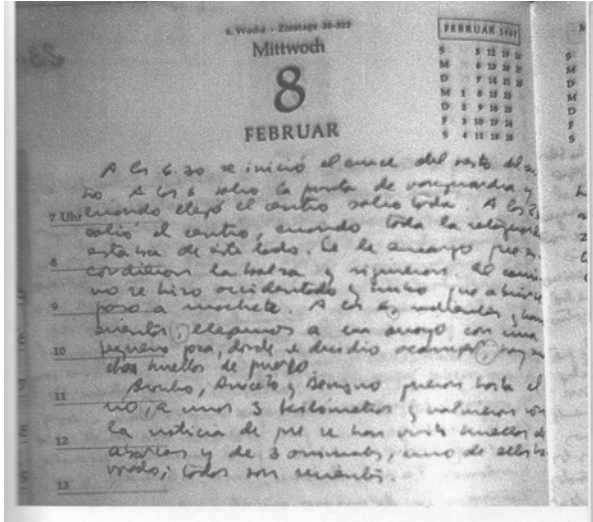 6. Woche – Zinstage 38-322
FEBRUAR 1967
Mittwoch
8
FEBRUAR
S 5 12 19 26
M 6 13 20 27
D 7 14 21 28
M 1 8 15 22
D 2 9 16 23
F 3 10 17 24
S 4 11 18 25
A las 6.30 se inició el cruce del resto del
A las 6 salio la punta de vanguardia y
7 Uhr cuando llegó el centro salio toda. A las
salió el centro, cuando toda la
estaba de este lado. Se le encargo que
8 la balsa y siguieran. El cami
no se hizo accidentado y hubo que abrirse
9 paso a machete. A las 6, y ham
brientos, llegamos a un arroyo con una
10 pequeña poza, donde se decidio acampar, hay mu
chas huellas de puerco.
11 Braulio, Aniceto y Benigno fueron hasta el
rio, a unos 3 kilómetros y volvieron con
12 la noticia de que se han visto huellas de
abarcas y de 3 animales, uno de ellos he
13 rrado; todas son recientes.